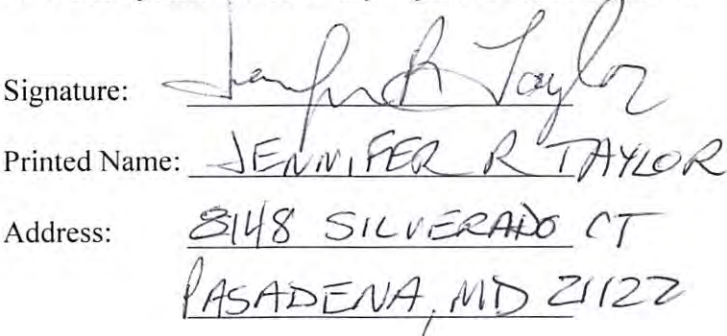 Signature: Jennifer R Taylor
Printed Name: JENNIFER R TAYLOR
Address: 8148 SILVERADO CT
PASADENA, MD 21122